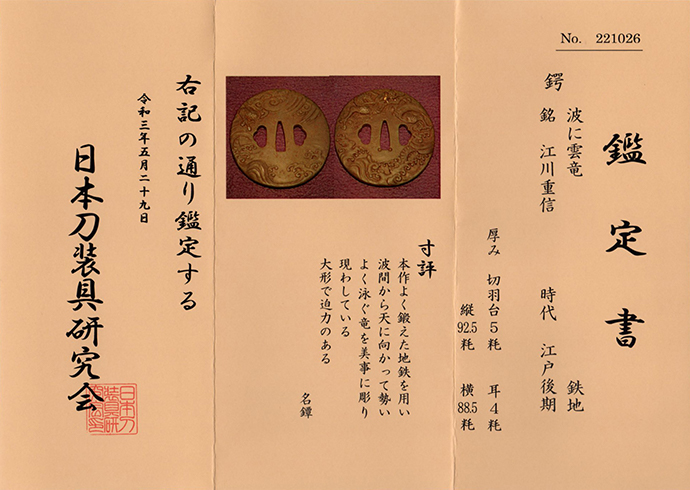 No. 221026
鑑定書
鍔　波に雲竜　鉄地
銘　江川重信　時代　江戸後期
厚み　切羽台５粍　耳４粍
縦92.5粍　横88.5粍
寸評
本作よく鍛えた地鉄を用い
波間から天に向かって勢い
よく泳ぐ竜を美事に彫り
現わしている
大形で迫力のある
名鐔
右記の通り鑑定する
令和三年五月二十九日
日本刀装具研究会